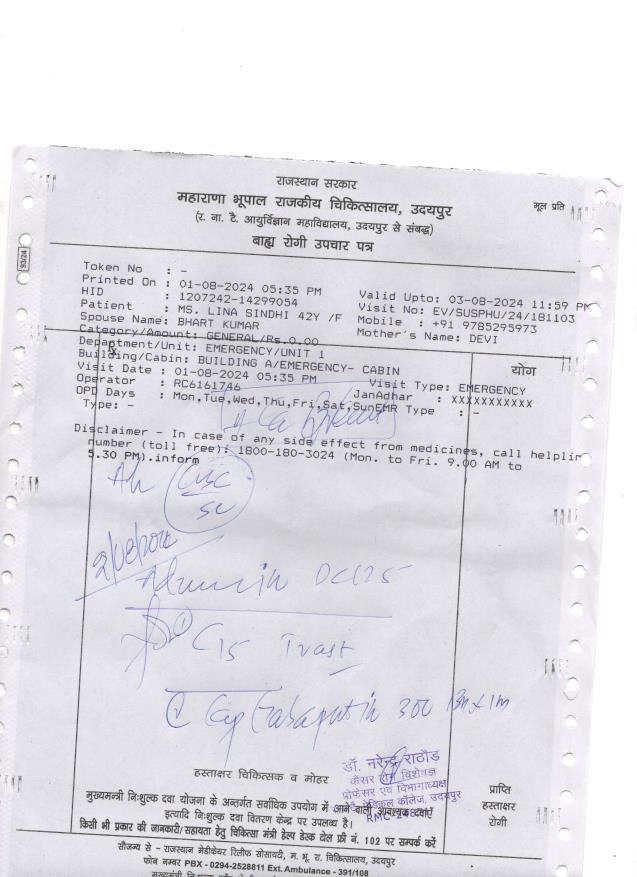 राजस्थान सरकार
महाराणा भूपाल राजकीय चिकित्सालय, उदयपुर
मूल प्रति
(र. ना. टै. आयुर्विज्ञान महाविद्यालय, उदयपुर से संबद्ध)
बाह्य रोगी उपचार पत्र
93/24
Token No : -
Printed On : 01-08-2024 05:35 PM
Valid Upto: 03-08-2024 11:59 PM
HID : 1207242-14299054
Visit No: EV/SUSPHU/24/181103
Patient : MS. LINA SINDHI 42Y /F
Mobile : +91 9785295973
Spouse Name: BHART KUMAR
Mother's Name: DEVI
Category/Amount: GENERAL/Rs.0.00
Department/Unit: EMERGENCY/UNIT 1
योग
Building/Cabin: BUILDING A/EMERGENCY- CABIN
Visit Date : 01-08-2024 05:35 PM
Visit Type: EMERGENCY
Operator : RC6161746
JanAdhar : XXXXXXXXXXX
OPD Days : Mon,Tue,Wed,Thu,Fri,Sat,SunEMR Type : -
Type: -
Disclaimer - In case of any side effect from medicines, call helplin
number (toll free): 1800-180-3024 (Mon. to Fri. 9.00 AM to
5.30 PM).inform
Adv
CBC
SC
① C15
② Cap Gabapentin 300
हस्ताक्षर चिकित्सक व मोहर
डॉ. नरेन्द्र राठौड़
कैंसर रोग विशेषज्ञ
प्रोफेसर एवं विभागाध्यक्ष
मेडिकल कॉलेज, उदयपुर
प्राप्ति
हस्ताक्षर
रोगी
मुख्यमन्त्री निःशुल्क दवा योजना के अन्तर्गत सर्वाधिक उपयोग में आने वाली आवश्यक दवाएँ
इत्यादि निःशुल्क दवा वितरण केन्द्र पर उपलब्ध है।
किसी भी प्रकार की जानकारी/सहायता हेतु चिकित्सा मंत्री हेल्प डेस्क टोल फ्री नं. 102 पर सम्पर्क करें
सौजन्य से – राजस्थान मेडीकेयर रिलीफ सोसायटी, म. भू. रा. चिकित्सालय, उदयपुर
फोन नम्बर PBX - 0294-2528811 Ext. Ambulance - 391/108